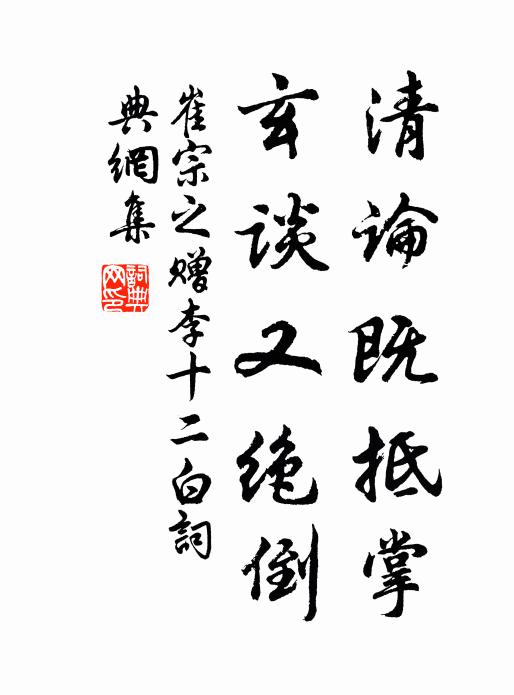 清論既抵掌
玄談又绝倒
崔宗之赠李十二白詞
典網集
詞典網印